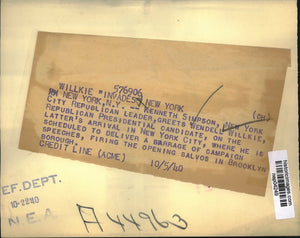 576906
WILLKIE "INVADES" NEW YORK
NEW YORK, N.Y. -- KENNETH SIMPSON, NEW YORK
CITY REPUBLICAN LEADER, GREETS WENDELL WILLKIE,
REPUBLICAN PRESIDENTIAL CANDIDATE, ON THE
LATTER'S ARRIVAL IN NEW YORK CITY, WHERE HE IS
SCHEDULED TO DELIVER A BARRAGE OF CAMPAIGN
SPEECHES, FIRING THE OPENING SALVOS IN BROOKLYN
BOROUGH.
CREDIT LINE (ACME) 10/5/40
EF. DEPT.
10-22-40
N.E.A.
A44963